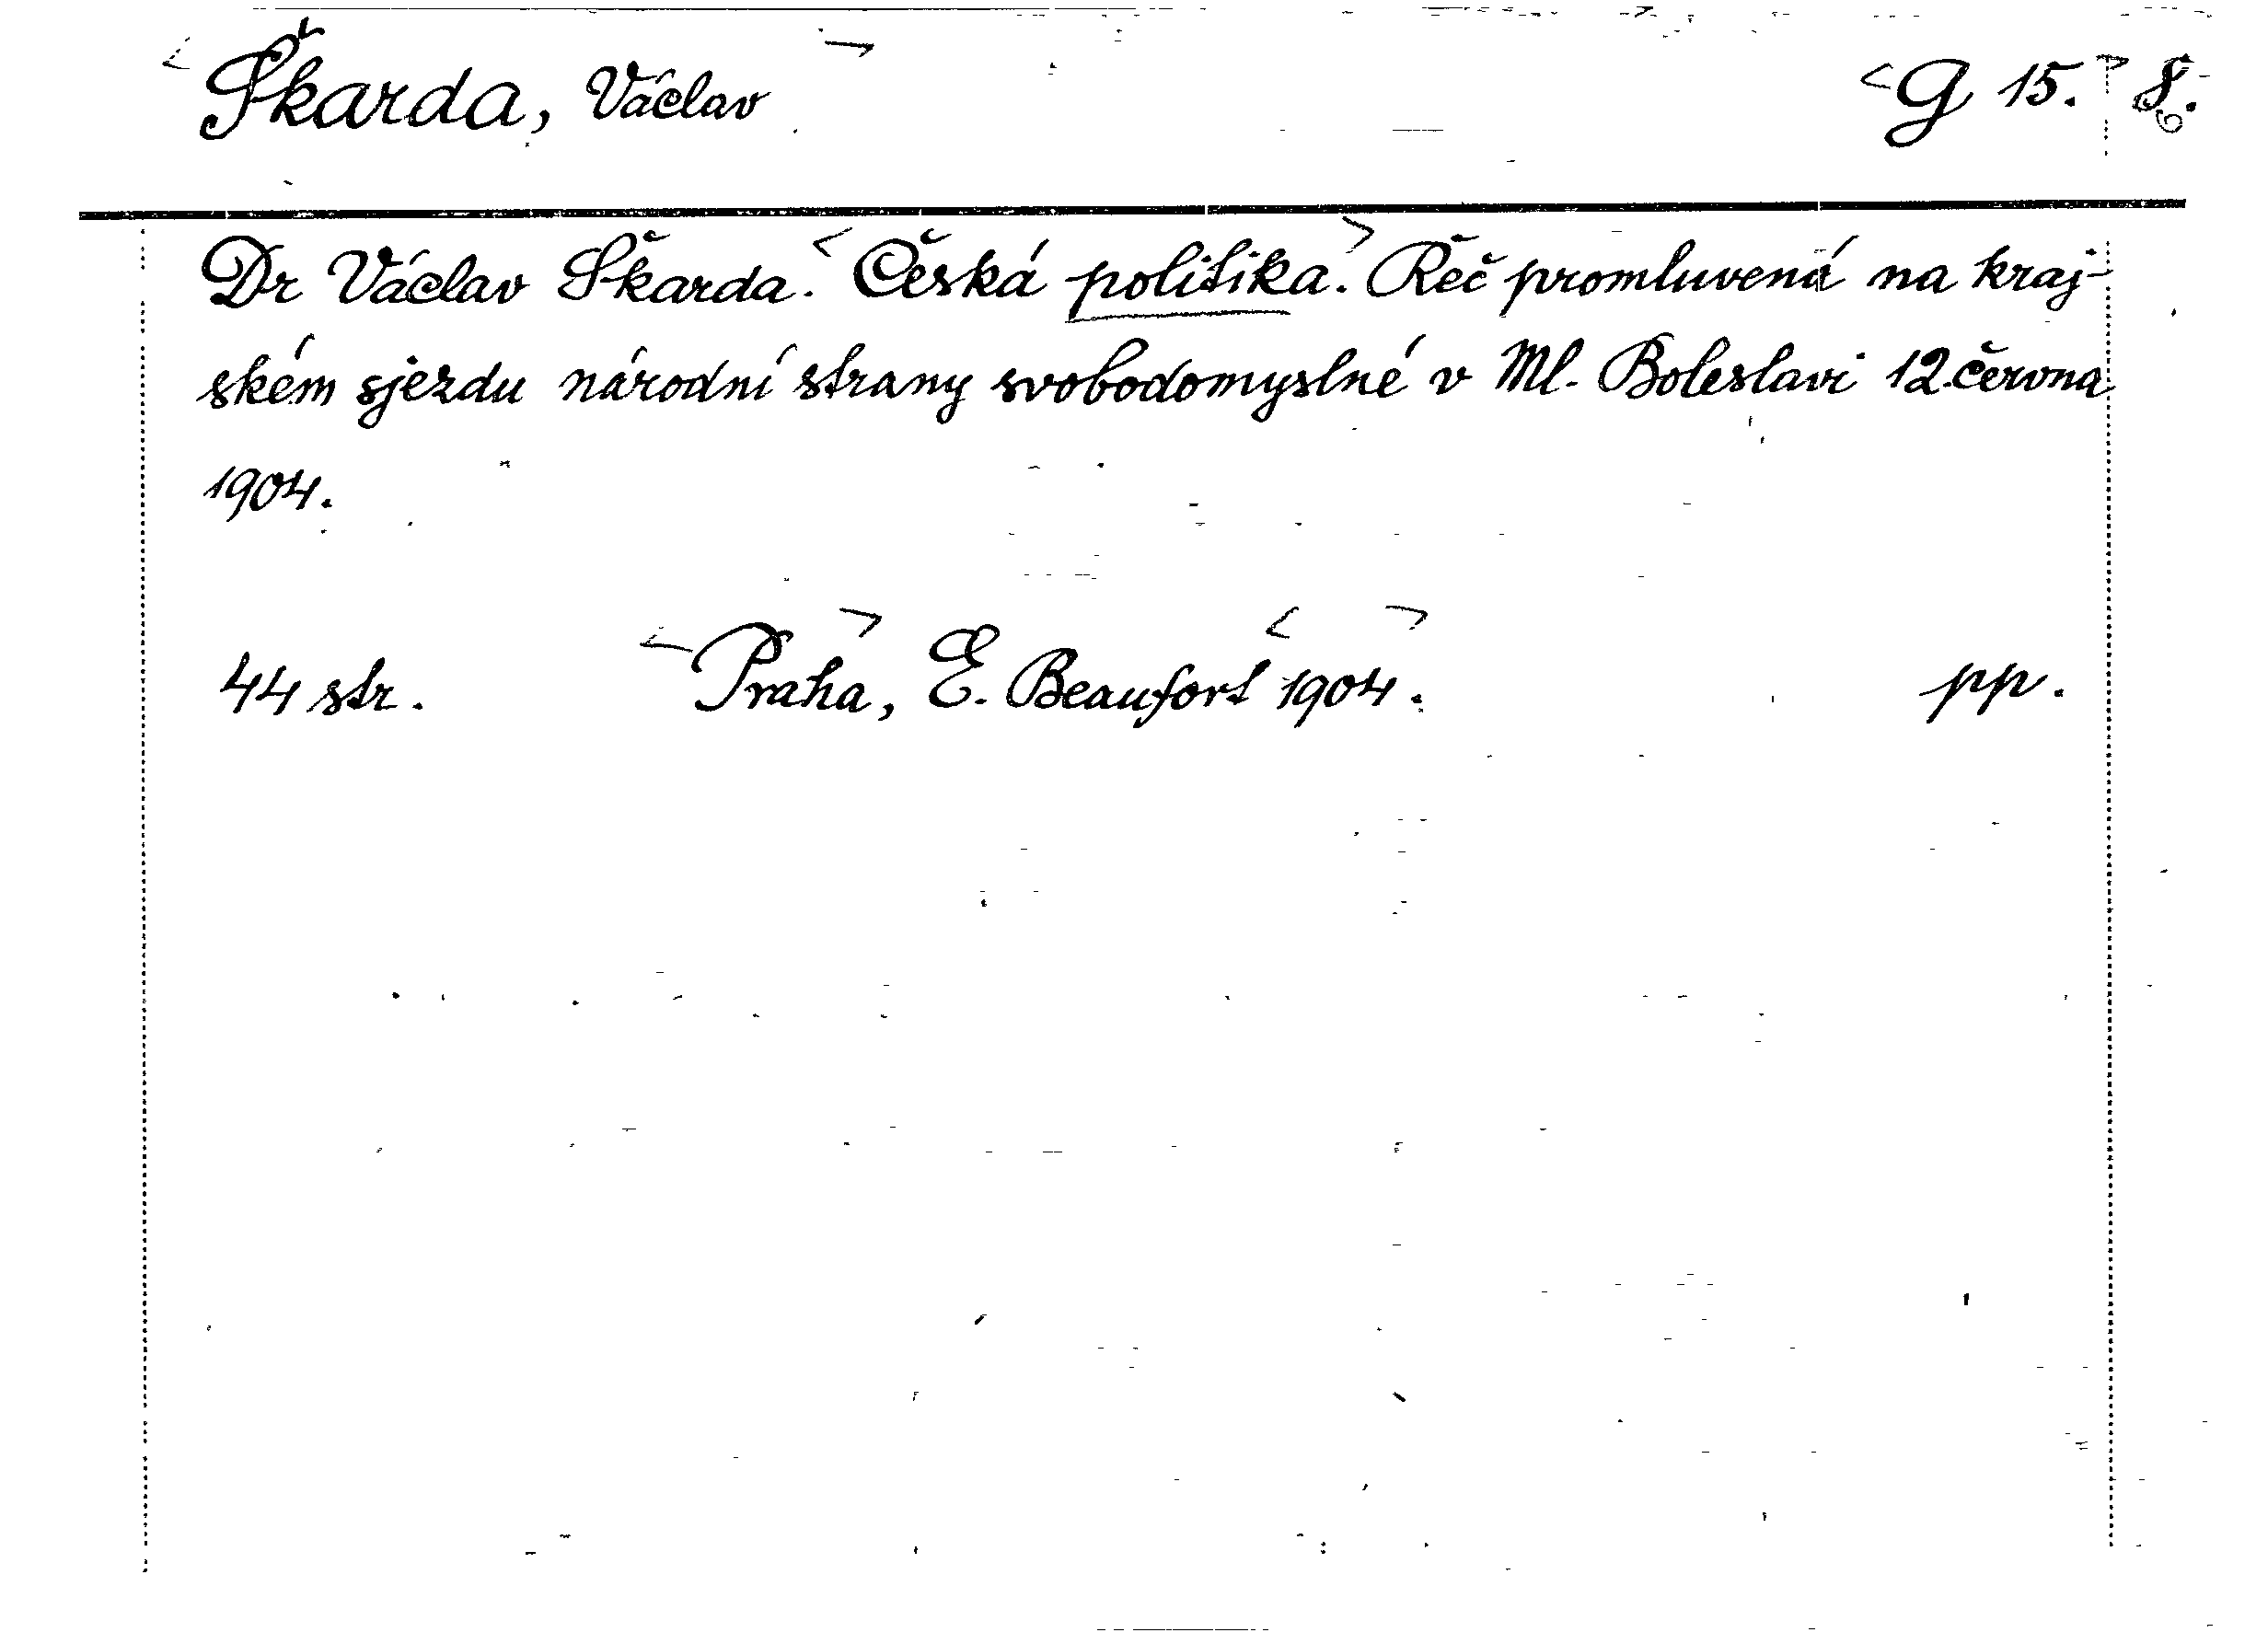 Škarda, Václav
G 15. 8.
Dr Václav Škarda. Česká politika. Řeč promluvená na kraj-
ském sjezdu národní strany svobodomyslné v Ml. Boleslavi 12. června
1904.
44 str. Praha, E. Beaufort 1904. pp.